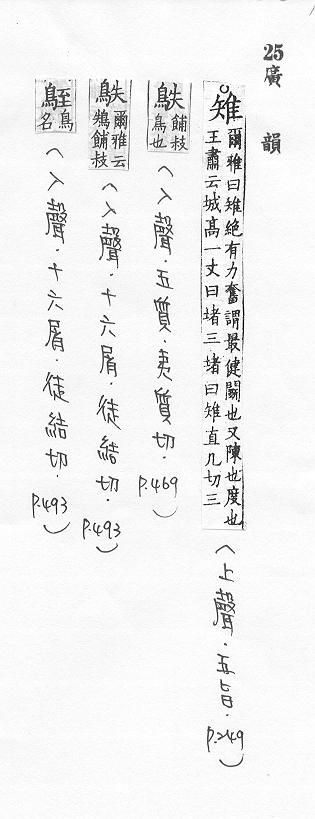 25廣韻
雉 爾雅曰雉絶有力奮謂最健鬭也又陳也度也
王肅云城高一丈曰堵三堵曰雉直几切三
(上聲.五旨.P.249)
鴩 餔枝
鳥也
(入聲.五質.夷質切.P.469)
鴩 爾雅云
鴩餔枝
(入聲.十六屑.徒結切.P.493)
鵄 鳥
名
(入聲.十六屑.徒結切.P.493)